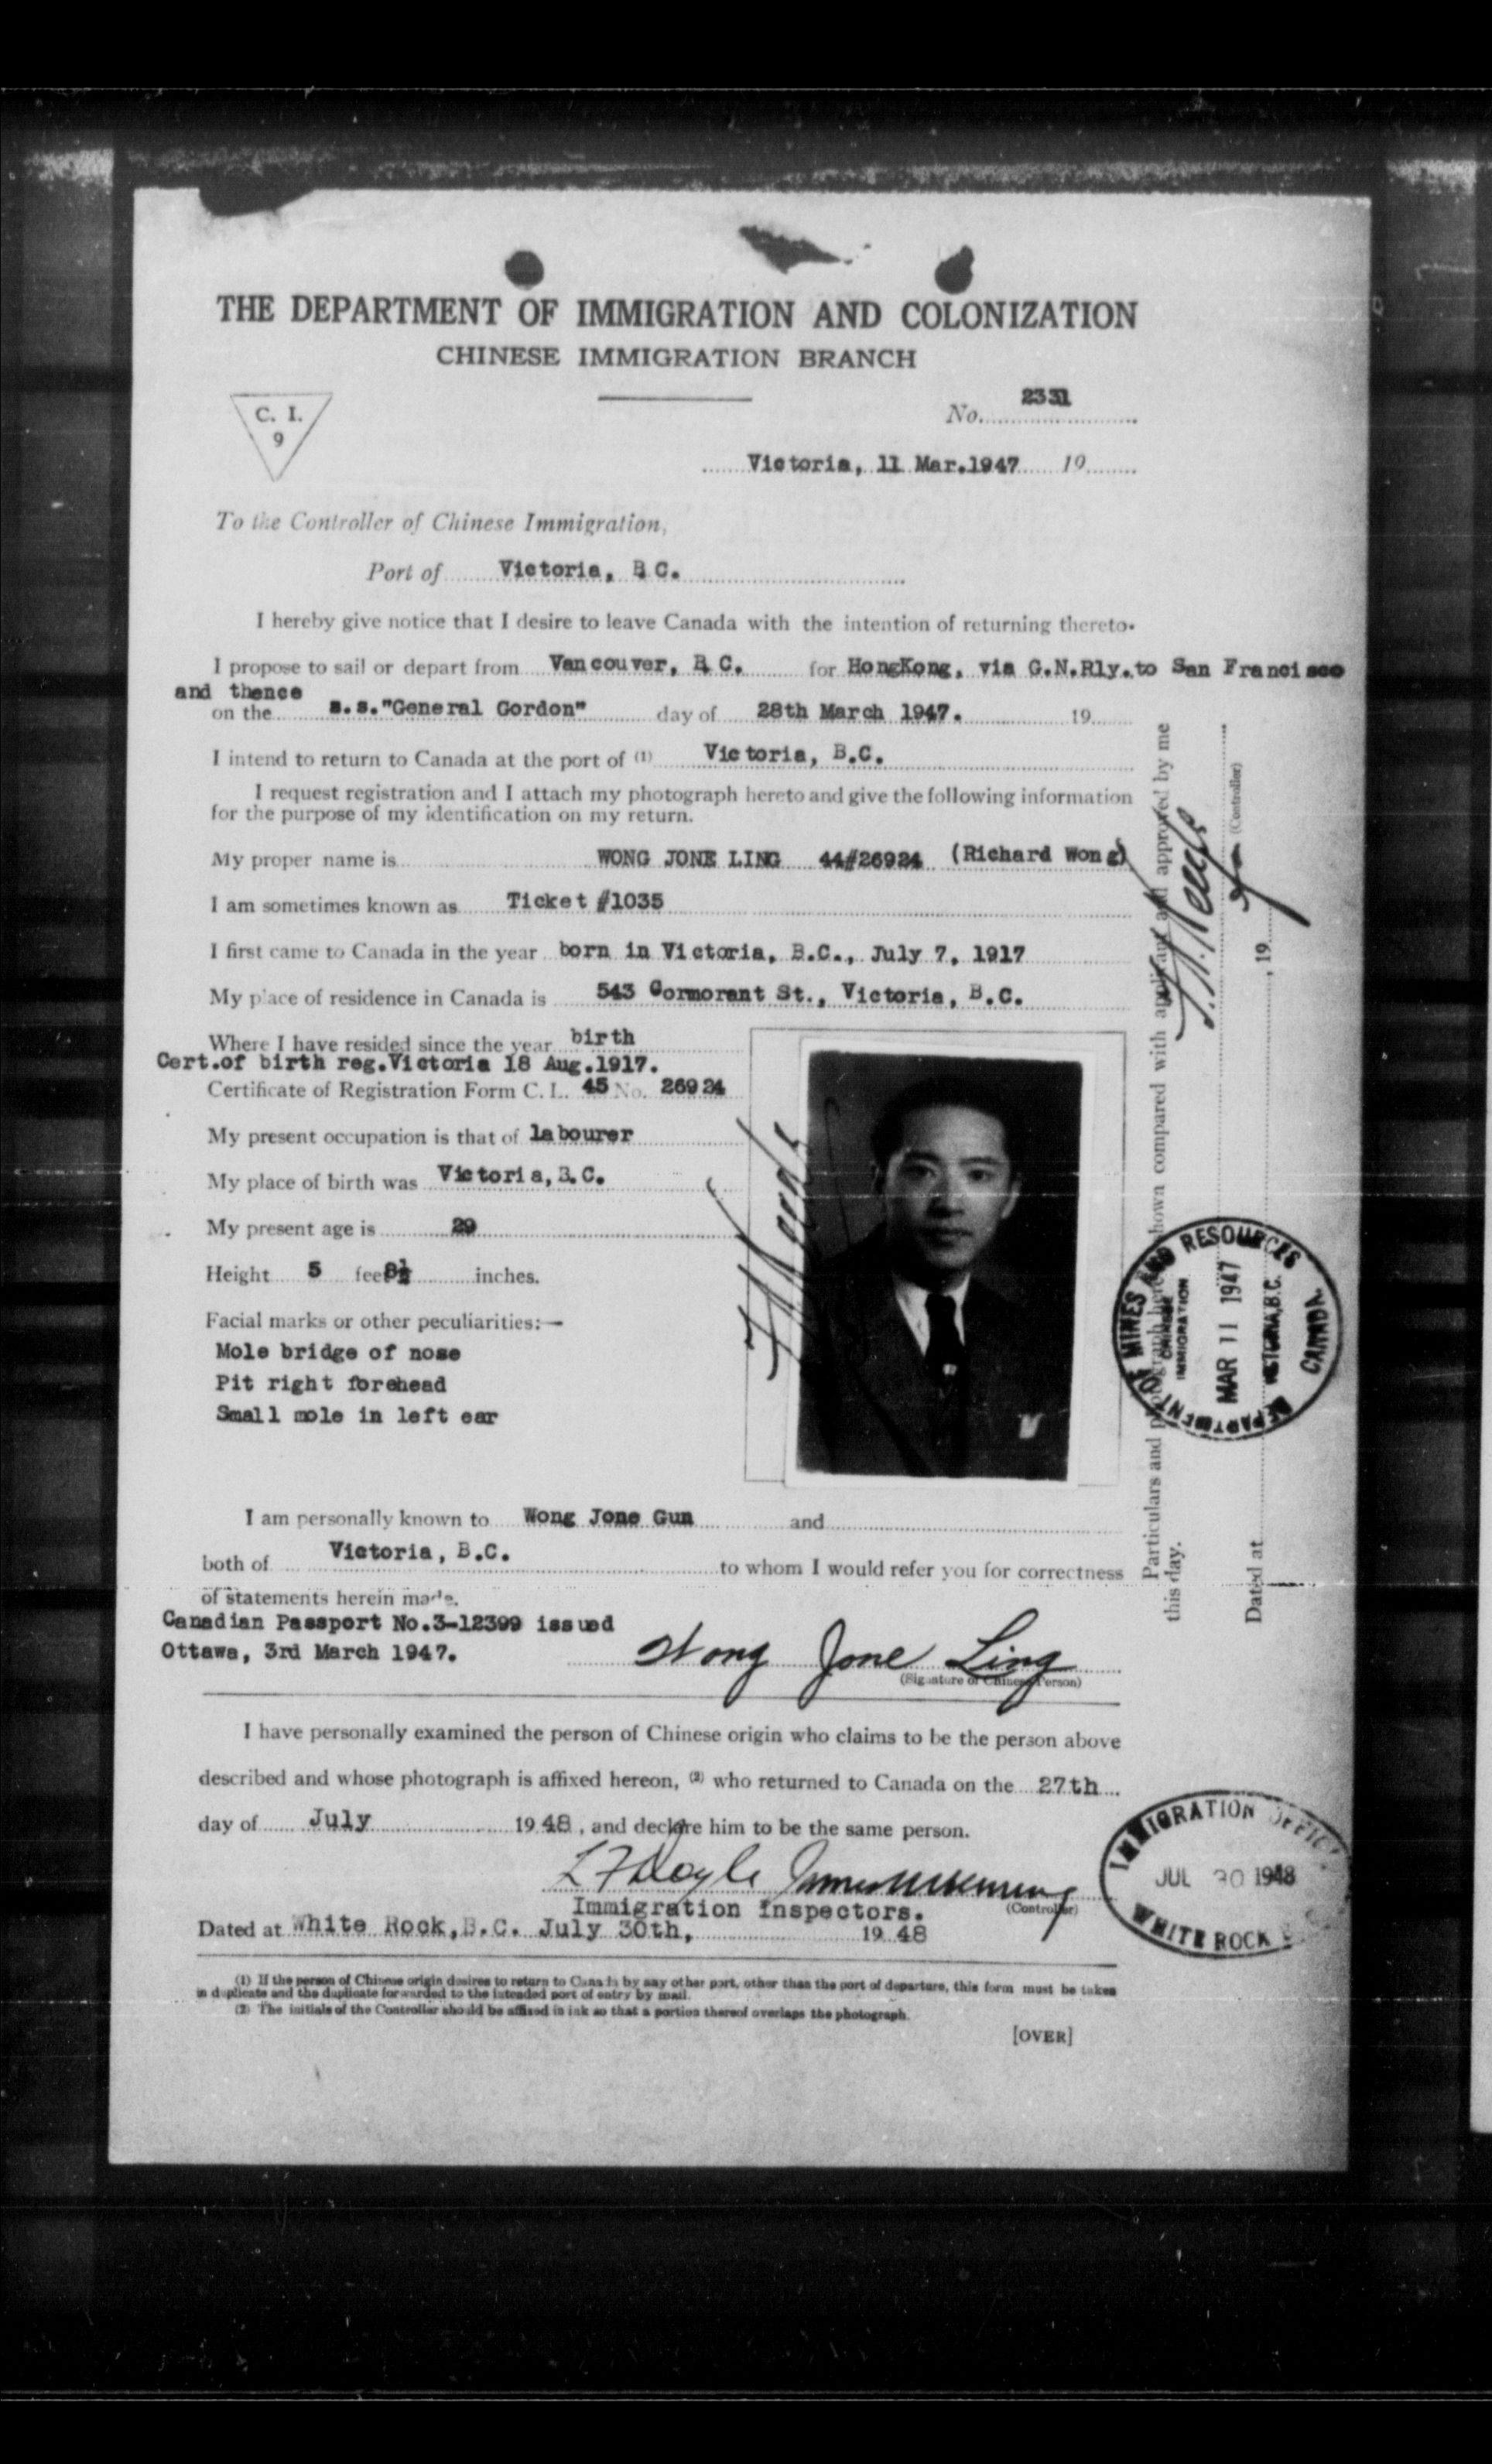 THE DEPARTMENT OF IMMIGRATION AND COLONIZATION
CHINESE IMMIGRATION BRANCH
C. I.
9
No. 2331
Victoria, 11 Mar.1947 19
To the Controller of Chinese Immigration,
Port of Victoria, B.C.
I hereby give notice that I desire to leave Canada with the intention of returning thereto.
I propose to sail or depart from Vancouver, B.C. for HongKong, via G.N.Rly.to San Francisco
and thence
on the s.s."General Gordon" day of 28th March 1947. 19
I intend to return to Canada at the port of (1) Victoria, B.C.
I request registration and I attach my photograph hereto and give the following information
for the purpose of my identification on my return.
My proper name is WONG JONE LING 44#26924 (Richard Wong)
I am sometimes known as Ticket #1035
I first came to Canada in the year born in Victoria, B.C., July 7, 1917
My place of residence in Canada is 543 Cormorant St., Victoria, B.C.
Where I have resided since the year birth
Cert.of birth reg.Victoria 18 Aug.1917.
Certificate of Registration Form C. I. 45 No. 26924
My present occupation is that of labourer
My place of birth was Victoria, B.C.
My present age is 29
Height 5 feet 8½ inches.
Facial marks or other peculiarities:—
Mole bridge of nose
Pit right forehead
Small mole in left ear
I am personally known to Wong Jone Gun and
both of Victoria, B.C. to whom I would refer you for correctness
of statements herein made.
Canadian Passport No.3-12399 issued
Ottawa, 3rd March 1947.
Wong Jone Ling
(Signature of Chinese Person)
I have personally examined the person of Chinese origin who claims to be the person above
described and whose photograph is affixed hereon, (2) who returned to Canada on the 27th
day of July 1948, and declare him to be the same person.
L F Doyle
Immigration Inspectors.
(Controller)
Dated at White Rock,B.C. July 30th, 19 48
(1) If the person of Chinese origin desires to return to Canada by any other port, other than the port of departure, this form must be taken
in duplicate and the duplicate forwarded to the intended port of entry by mail.
(2) The initials of the Controller should be affixed in ink so that a portion thereof overlaps the photograph.
[OVER]
Particulars and photograph hereon shown compared with applicant and approved by me
this day.
(Controller)
Dated at , 19
DEPARTMENT OF MINES AND RESOURCES
CHINESE
IMMIGRATION
MAR 11 1947
VICTORIA, B.C.
CANADA
IMMIGRATION OFFICE
JUL 30 1948
WHITE ROCK